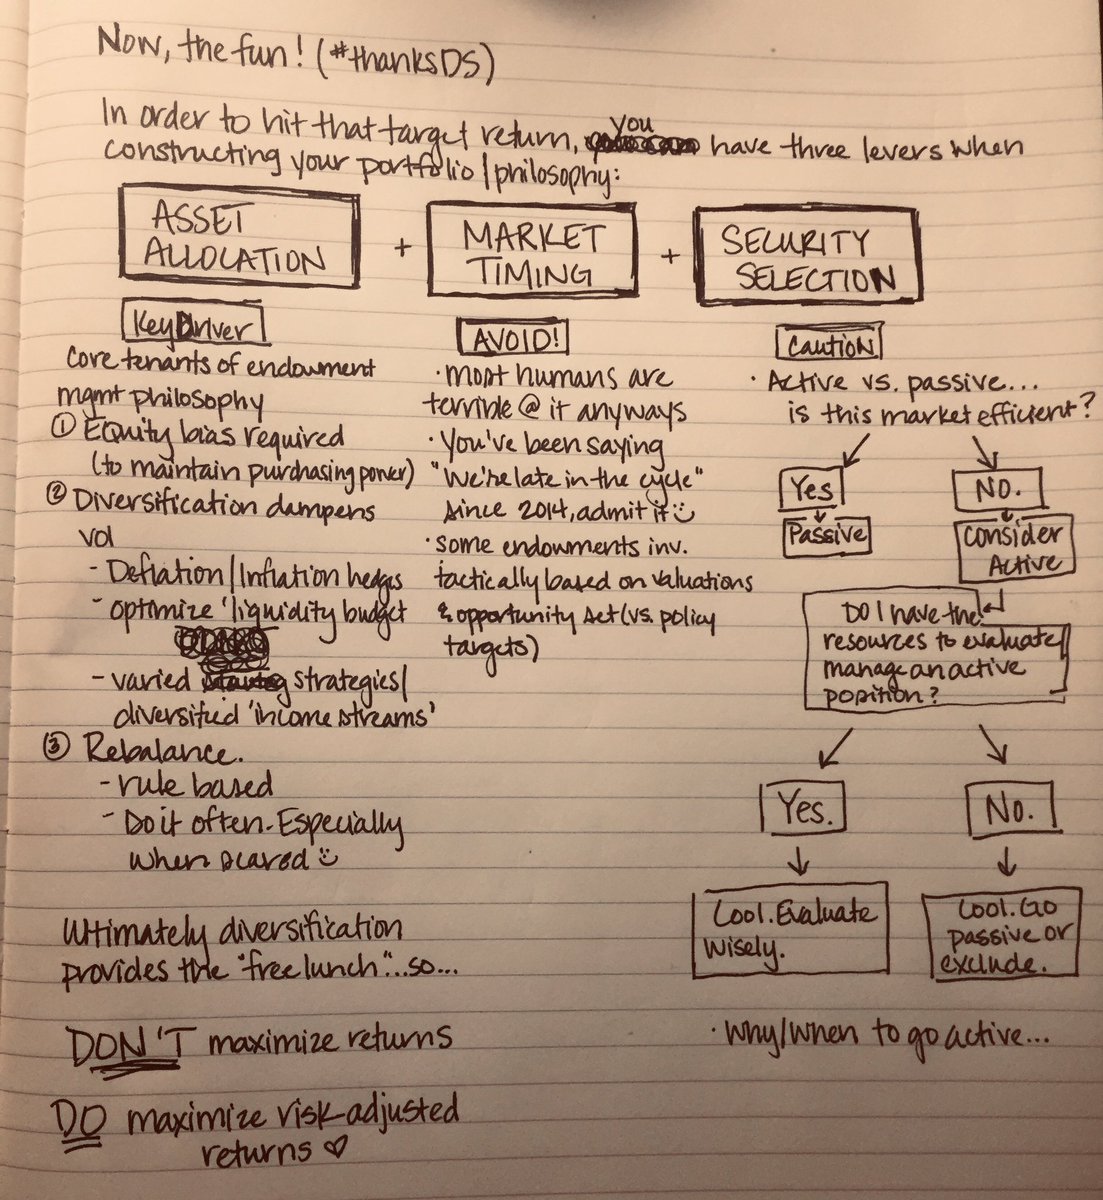 Now, the fun! (#thanksDS)
In order to hit that target return, you have three levers when
constructing your portfolio/philosophy:
ASSET
ALLOCATION
+
MARKET
TIMING
+
SECURITY
SELECTION
Key Driver
core tenants of endowment
mgmt philosophy
① Equity bias required
(to maintain purchasing power)
② Diversification dampens
vol
- Deflation/Inflation hedges
- optimize 'liquidity budget
- varied strategies/
diversified 'income streams'
③ Rebalance.
- rule based
- Do it often. Especially
when scared ☺
Ultimately diversification
provides the "free lunch"...so...
DON'T maximize returns
DO maximize risk-adjusted
returns ♡
AVOID!
· most humans are
terrible @ it anyways
· You've been saying
"We're late in the cycle"
since 2014, admit it ☺
· some endowments inv.
tactically based on valuations
& opportunity set (vs. policy
targets)
Caution
· Active vs. passive...
is this market efficient?
Yes
Passive
No.
Consider
Active
Do I have the
resources to evaluate/
manage an active
position?
Yes.
Cool. Evaluate
wisely.
No.
Cool. Go
passive or
exclude.
· Why/when to go active...